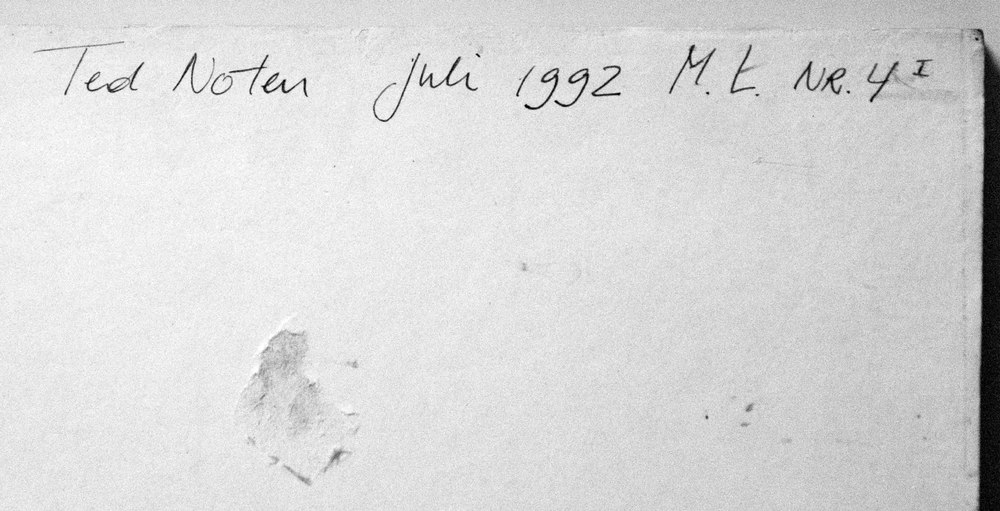 Ted Noten juli 1992 M.t. NR. 4 I